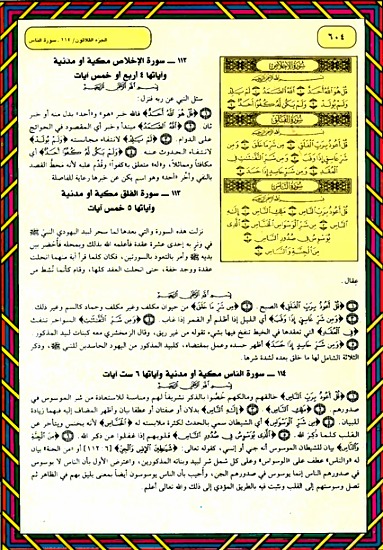 ٦٠٤
الجزء الثلاثون / ١١٤ ـ سورة الناس
سورة الإخلاص
قُلْ هُوَ اللَّهُ أَحَدٌ اللَّهُ الصَّمَدُ لَمْ يَلِدْ
وَلَمْ يُولَدْ وَلَمْ يَكُن لَّهُ كُفُوًا أَحَدٌ
سورة الفلق
قُلْ أَعُوذُ بِرَبِّ الْفَلَقِ مِن شَرِّ مَا خَلَقَ وَمِن
شَرِّ غَاسِقٍ إِذَا وَقَبَ وَمِن شَرِّ النَّفَّاثَاتِ فِي
الْعُقَدِ وَمِن شَرِّ حَاسِدٍ إِذَا حَسَدَ
سورة الناس
قُلْ أَعُوذُ بِرَبِّ النَّاسِ مَلِكِ النَّاسِ إِلَٰهِ
النَّاسِ مِن شَرِّ الْوَسْوَاسِ الْخَنَّاسِ الَّذِي
يُوَسْوِسُ فِي صُدُورِ النَّاسِ
مِنَ الْجِنَّةِ وَالنَّاسِ
١١٢ ـ سورة الإخلاص مكية أو مدنية
وآياتها ٤ أربع أو خمس آيات
بسم الله الرحمن الرحيم
سئل النبي عن ربه فنزل:
﴿قُلْ هُوَ اللَّهُ أَحَدٌ﴾ فالله خبر «هو» و«أحد» بدل منه أو خبر
ثان. ﴿اللَّهُ الصَّمَدُ﴾ مبتدأ وخبر أي المقصود في الحوائج
على الدوام. ﴿لَمْ يَلِدْ﴾ لانتفاء مجانسته ﴿وَلَمْ يُولَدْ﴾
لانتفاء الحدوث عنه. ﴿وَلَمْ يَكُن لَّهُ كُفُوًا أَحَدٌ﴾ أي
مكافئاً ومماثلاً، و«له» متعلق بـ«كفواً» وقُدِّم عليه لأنه محط القصد
بالنفي وأخِّر «أحد» وهو اسم يكن عن خبرها رعاية للفاصلة
١١٣ ـ سورة الفلق مكية أو مدنية
وآياتها ٥ خمس آيات
نزلت هذه السورة والتي بعدها لما سحر لبيد اليهودي النبيّ
في وتر به إحدى عشرة عقدة فأعلمه الله بذلك وبمحله فأحضر بين
يديه ﷺ وأمر بالتعوذ بالسورتين، فكان كلما قرأ آية منهما انحلت
عقدة ووجد خفة، حتى انحلت العقد كلها، وقام كأنما نُشط من
عقال.
بسم الله الرحمن الرحيم
﴿قُلْ أَعُوذُ بِرَبِّ الْفَلَقِ﴾ الصبح. ﴿مِن شَرِّ مَا خَلَقَ﴾ من حيوان مكلف وغير مكلف وجماد كالسم وغير ذلك
﴿وَمِن شَرِّ غَاسِقٍ إِذَا وَقَبَ﴾ أي الليل إذا أظلم أو القمر إذا غاب. ﴿وَمِن شَرِّ النَّفَّاثَاتِ﴾ السواحر تنفث
﴿فِي الْعُقَدِ﴾ التي تعقدها في الخيط تنفخ فيها بشيء تقوله من غير ريق، وقال الزمخشري معه كبنات لبيد المذكور
﴿وَمِن شَرِّ حَاسِدٍ إِذَا حَسَدَ﴾ أظهر حسده وعمل بمقتضاه، كلبيد المذكور من اليهود الحاسدين للنبي ﷺ، وذكر
الثلاثة الشامل لها ما خلق بعده لشدة شرها.
١١٤ ـ سورة الناس مكية أو مدنية وآياتها ٦ ست آيات
بسم الله الرحمن الرحيم
﴿قُلْ أَعُوذُ بِرَبِّ النَّاسِ﴾ خالقهم ومالكهم خُصُّوا بالذكر تشريفاً لهم ومناسبة للاستعاذة من شر الموسوس في
صدورهم. ﴿مَلِكِ النَّاسِ﴾. ﴿إِلَٰهِ النَّاسِ﴾ بدلان أو صفتان أو عطفا بيان وأظهر المضاف إليه فيهما زيادة
للبيان. ﴿مِن شَرِّ الْوَسْوَاسِ﴾ أي الشيطان سمي بالحدث لكثرة ملابسته له ﴿الْخَنَّاسِ﴾ لأنه يخنس ويتأخر عن
القلب كلما ذُكِرَ الله. ﴿الَّذِي يُوَسْوِسُ فِي صُدُورِ النَّاسِ﴾ قلوبهم إذا غفلوا عن ذكر الله. ﴿مِنَ الْجِنَّةِ
وَالنَّاسِ﴾ بيان للشيطان الموسوس أنه جني أو إنسي، كقوله تعالى: ﴿شَيَاطِينَ الْإِنسِ وَالْجِنِّ﴾ [٦:١١٢] أو «من الجنة» بيان
له «والناس» عطف على «الوسواس» وعلى كل شمل شر لبيد وبناته المذكورين، واعترض الأول بأن الناس لا يوسوس
في صدورهم الناس إنما يوسوس في صدورهم الجن، وأجيب بأن الناس يوسوسون أيضاً بمعنى يليق بهم في الظاهر ثم
تصل وسوستهم إلى القلب وتثبت فيه بالطريق المؤدي إلى ذلك والله تعالى أعلم